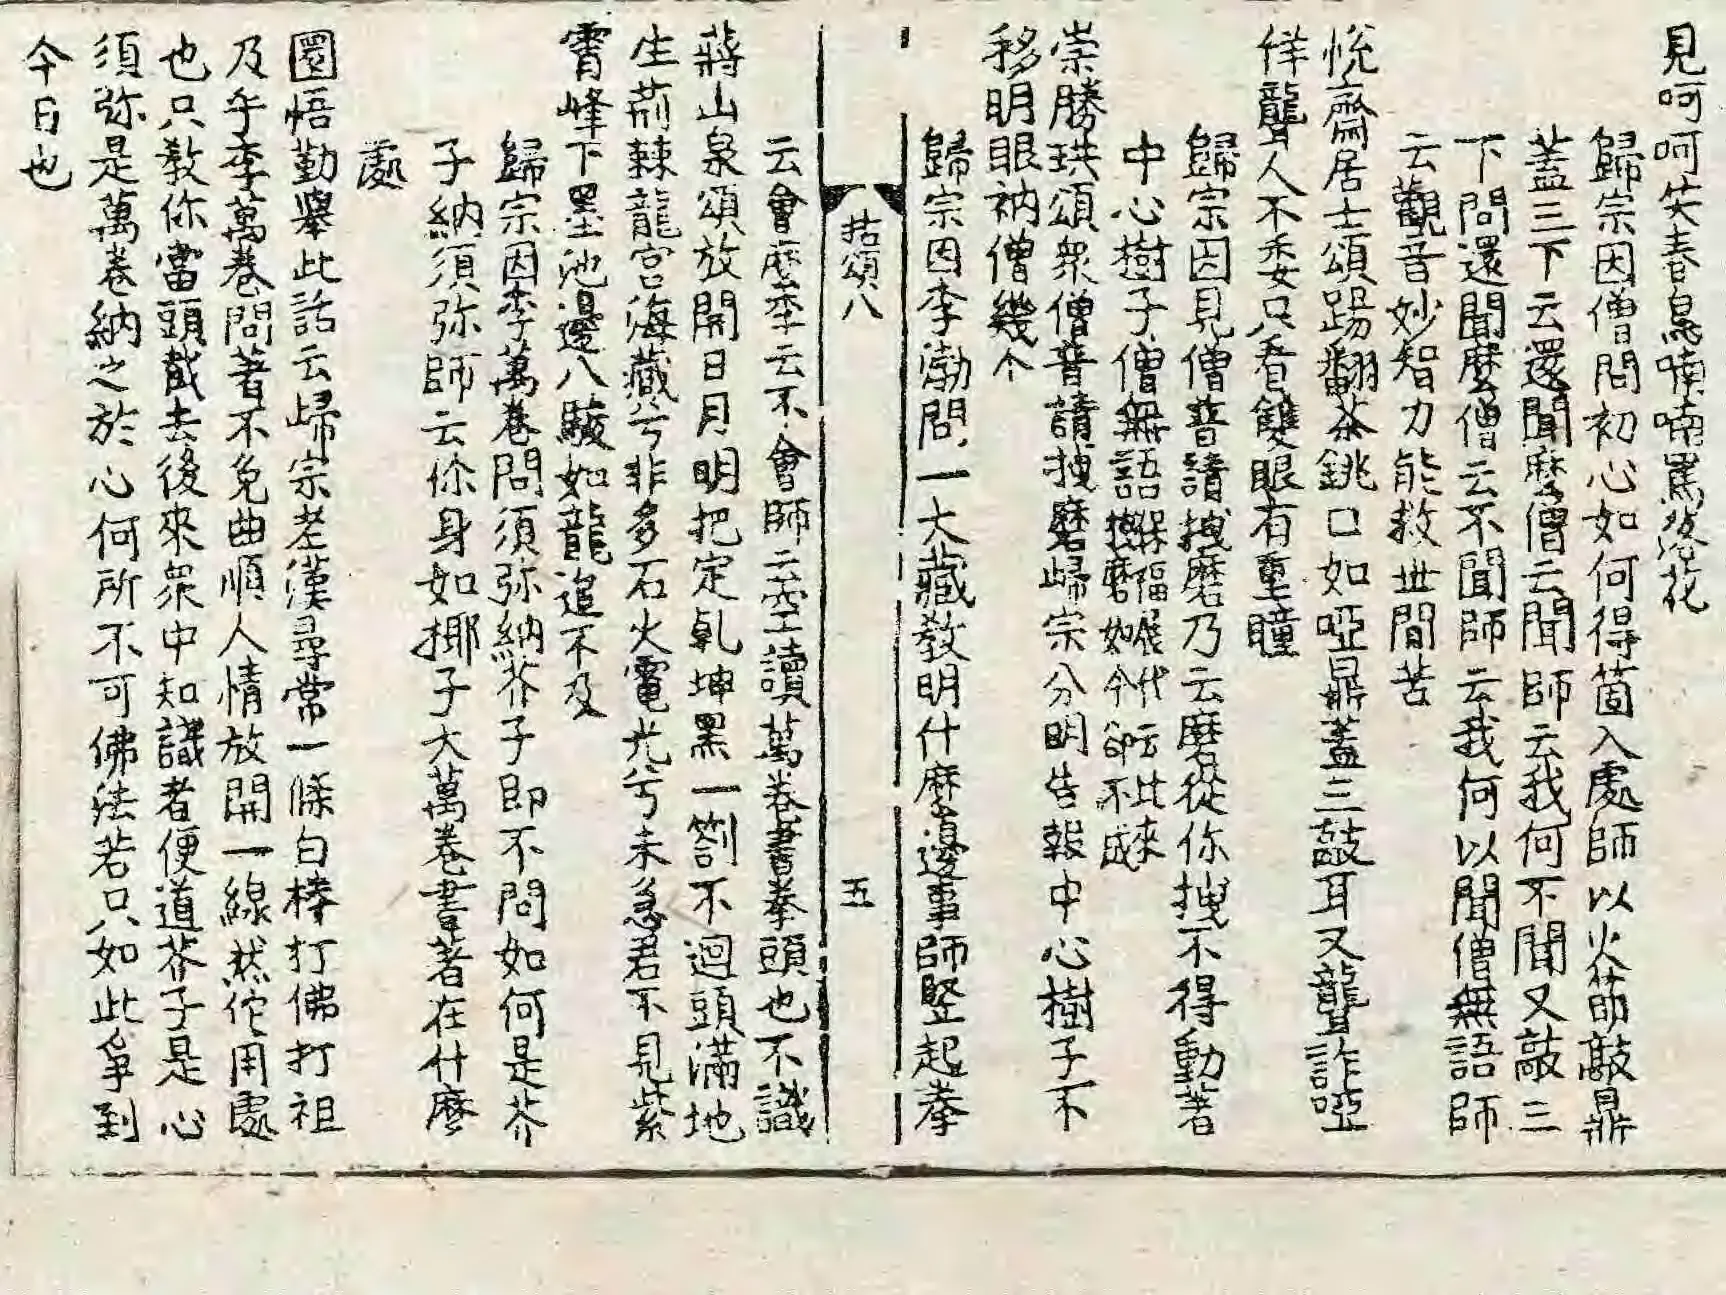 見呵呵笑春鳥喃喃罵落花
歸宗因僧問初心如何得箇入處師以火筯敲鼎
蓋三下云還聞麽僧云聞師云我何不聞又敲三
下問還聞麽僧云不聞師云我何以聞僧無語師
云觀音妙智力能救世間苦
悅齋居士頌踢翻茶銚口如啞鼎蓋三敲耳又聾詐啞
佯聾人不委只看雙眼有重瞳
歸宗因見僧普請拽磨乃云磨從你拽不得動著
中心樹子僧無語保福展代云比來
拽磨如今卻不成
崇勝珙頌衆僧普請拽磨歸宗分明告報中心樹子不
移明眼衲僧幾个
歸宗因李渤問一大藏教明什麽邊事師竪起拳
拈頌八
五
云會麽李云不會師云空讀萬卷書拳頭也不識
蔣山泉頌放開日月明把定乹坤黑一劄不迴頭滿地
生荊棘龍宮海藏兮非多石火電光兮未急君不見紫
霄峰下墨池邊八駿如龍追不及
歸宗因李萬卷問須弥納芥子即不問如何是芥
子納須弥師云你身如揶子大萬卷書著在什麽
處
圜悟勤舉此話云歸宗老漢尋常一條白棒打佛打祖
及乎李萬卷問著不免曲順人情放開一線然佗用處
也只敎你當頭截去後來衆中知識者便道芥子是心
須弥是萬卷納之於心何所不可佛法若只如此爭到
今日也